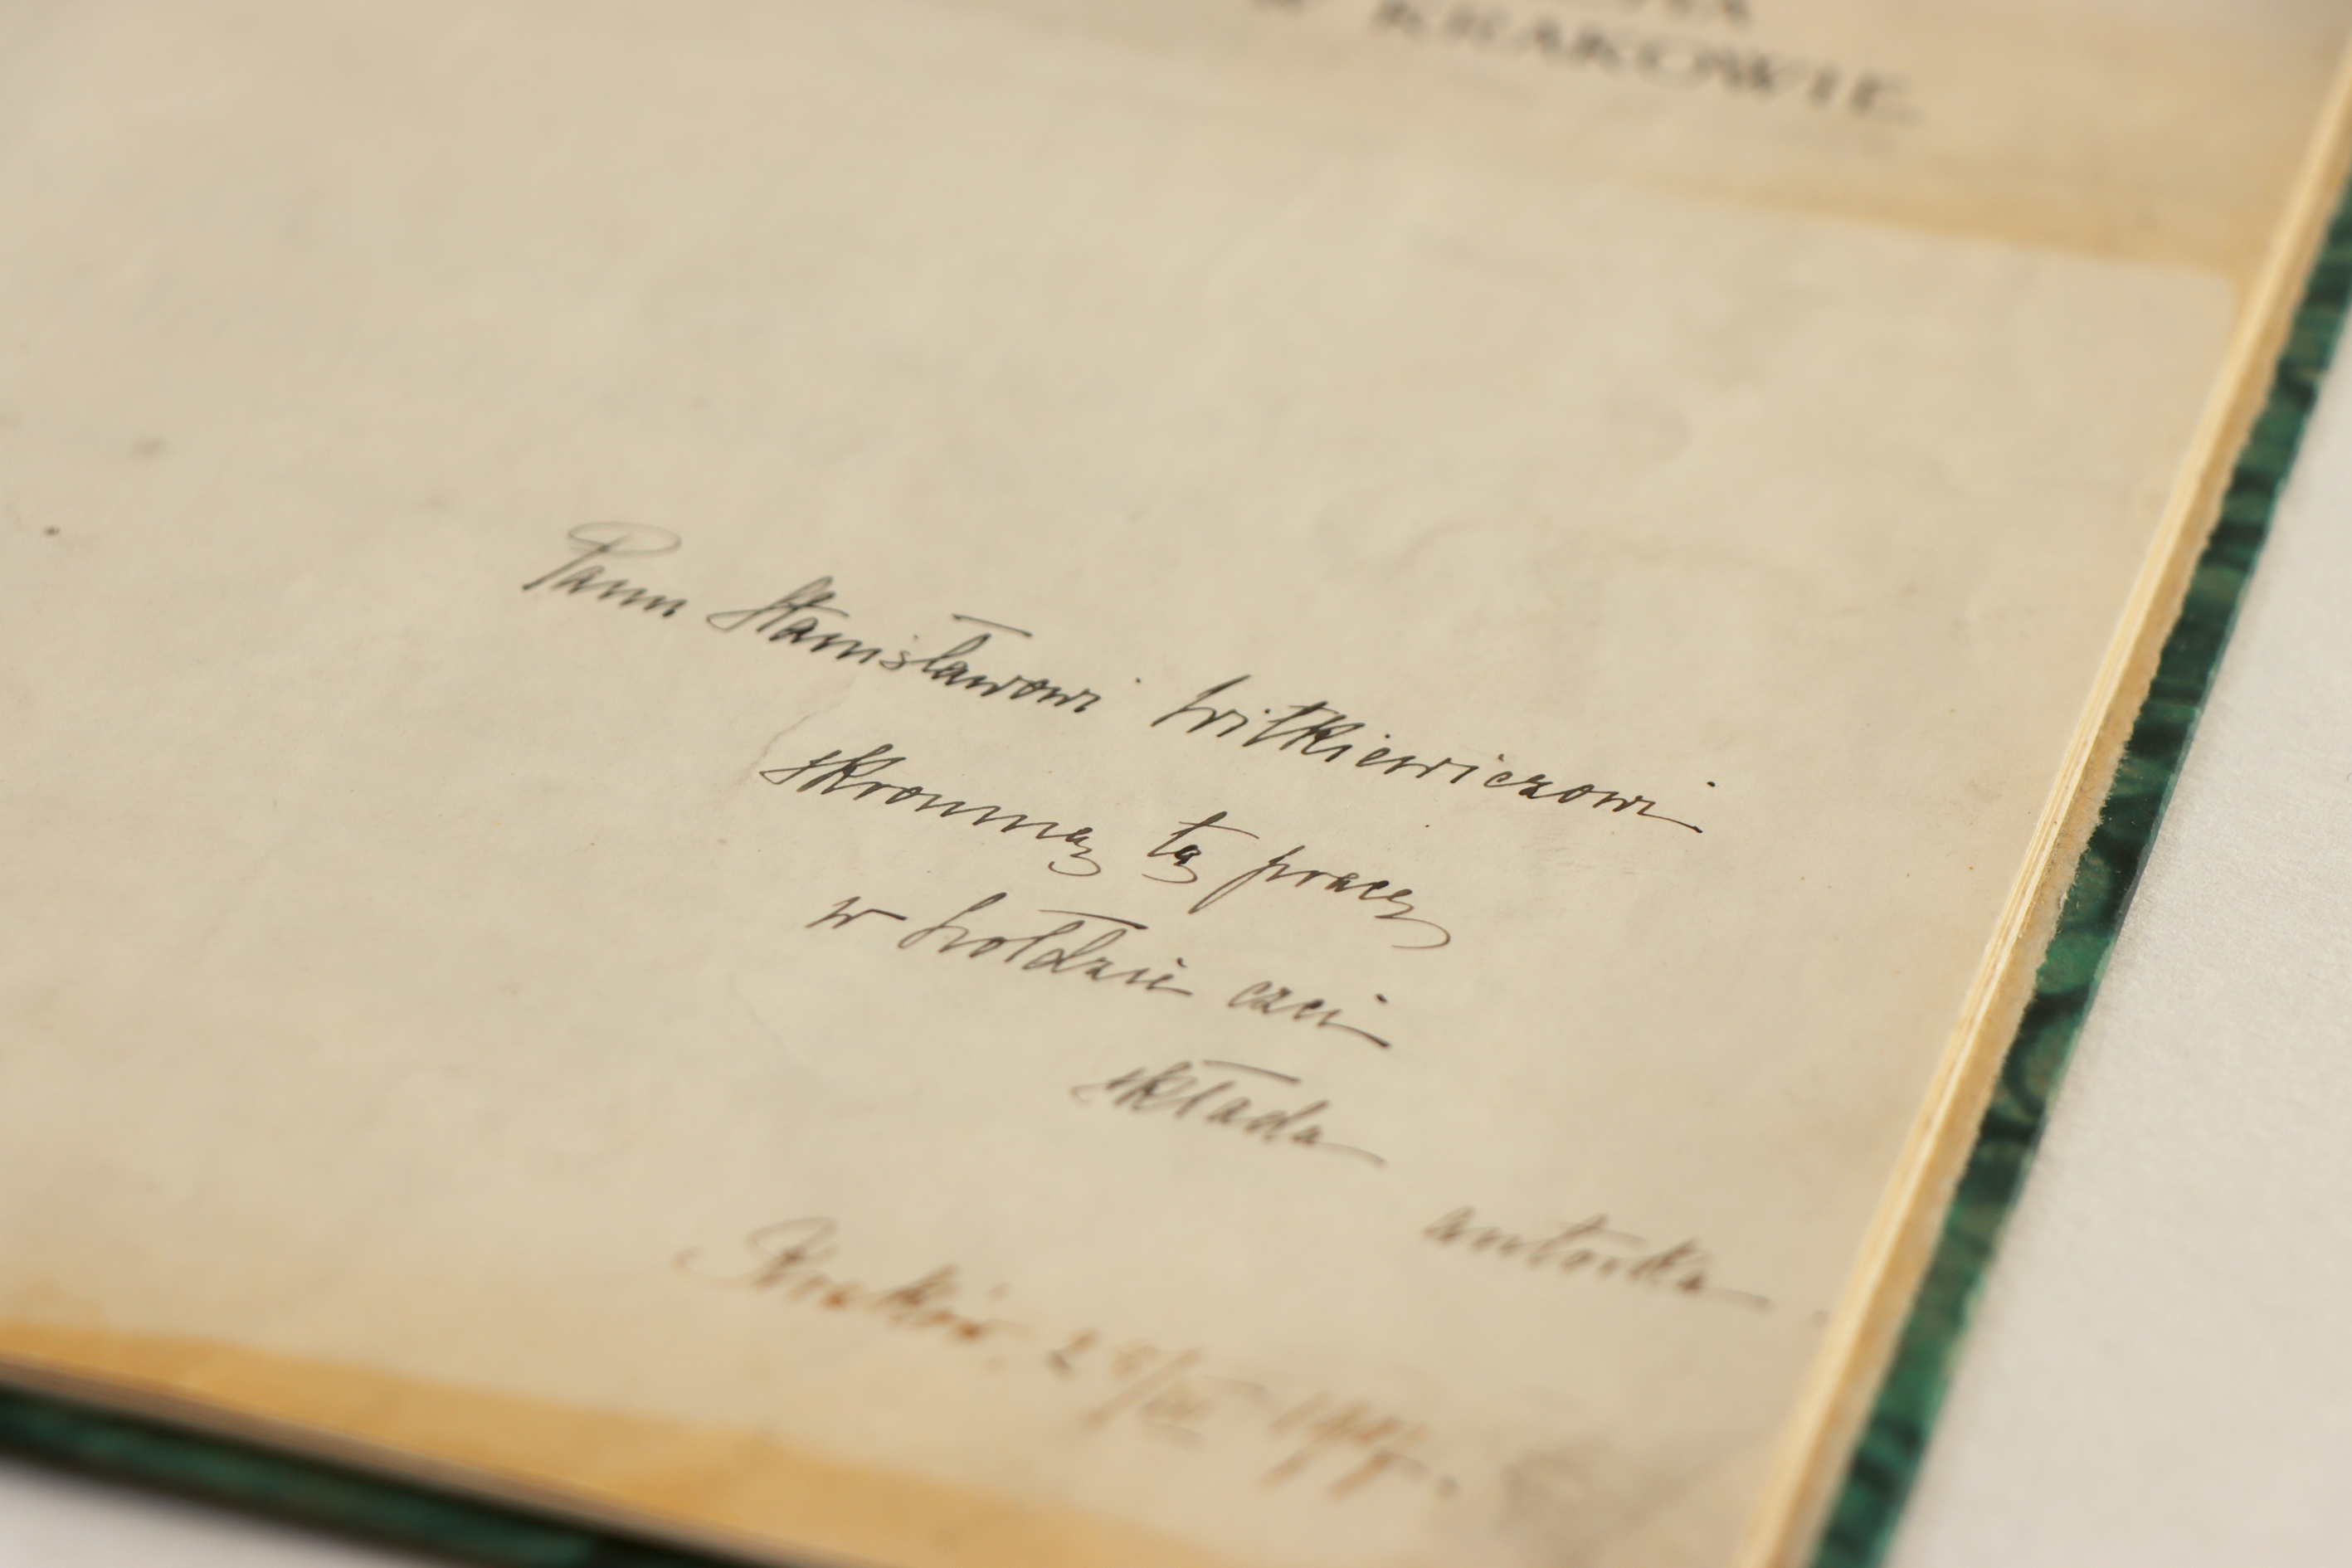 W KRAKOWIE
Panu Stanisławowi Witkiewiczowi
skromną tą pracę
w hołdzie czci
składa
autorka.
Kraków.